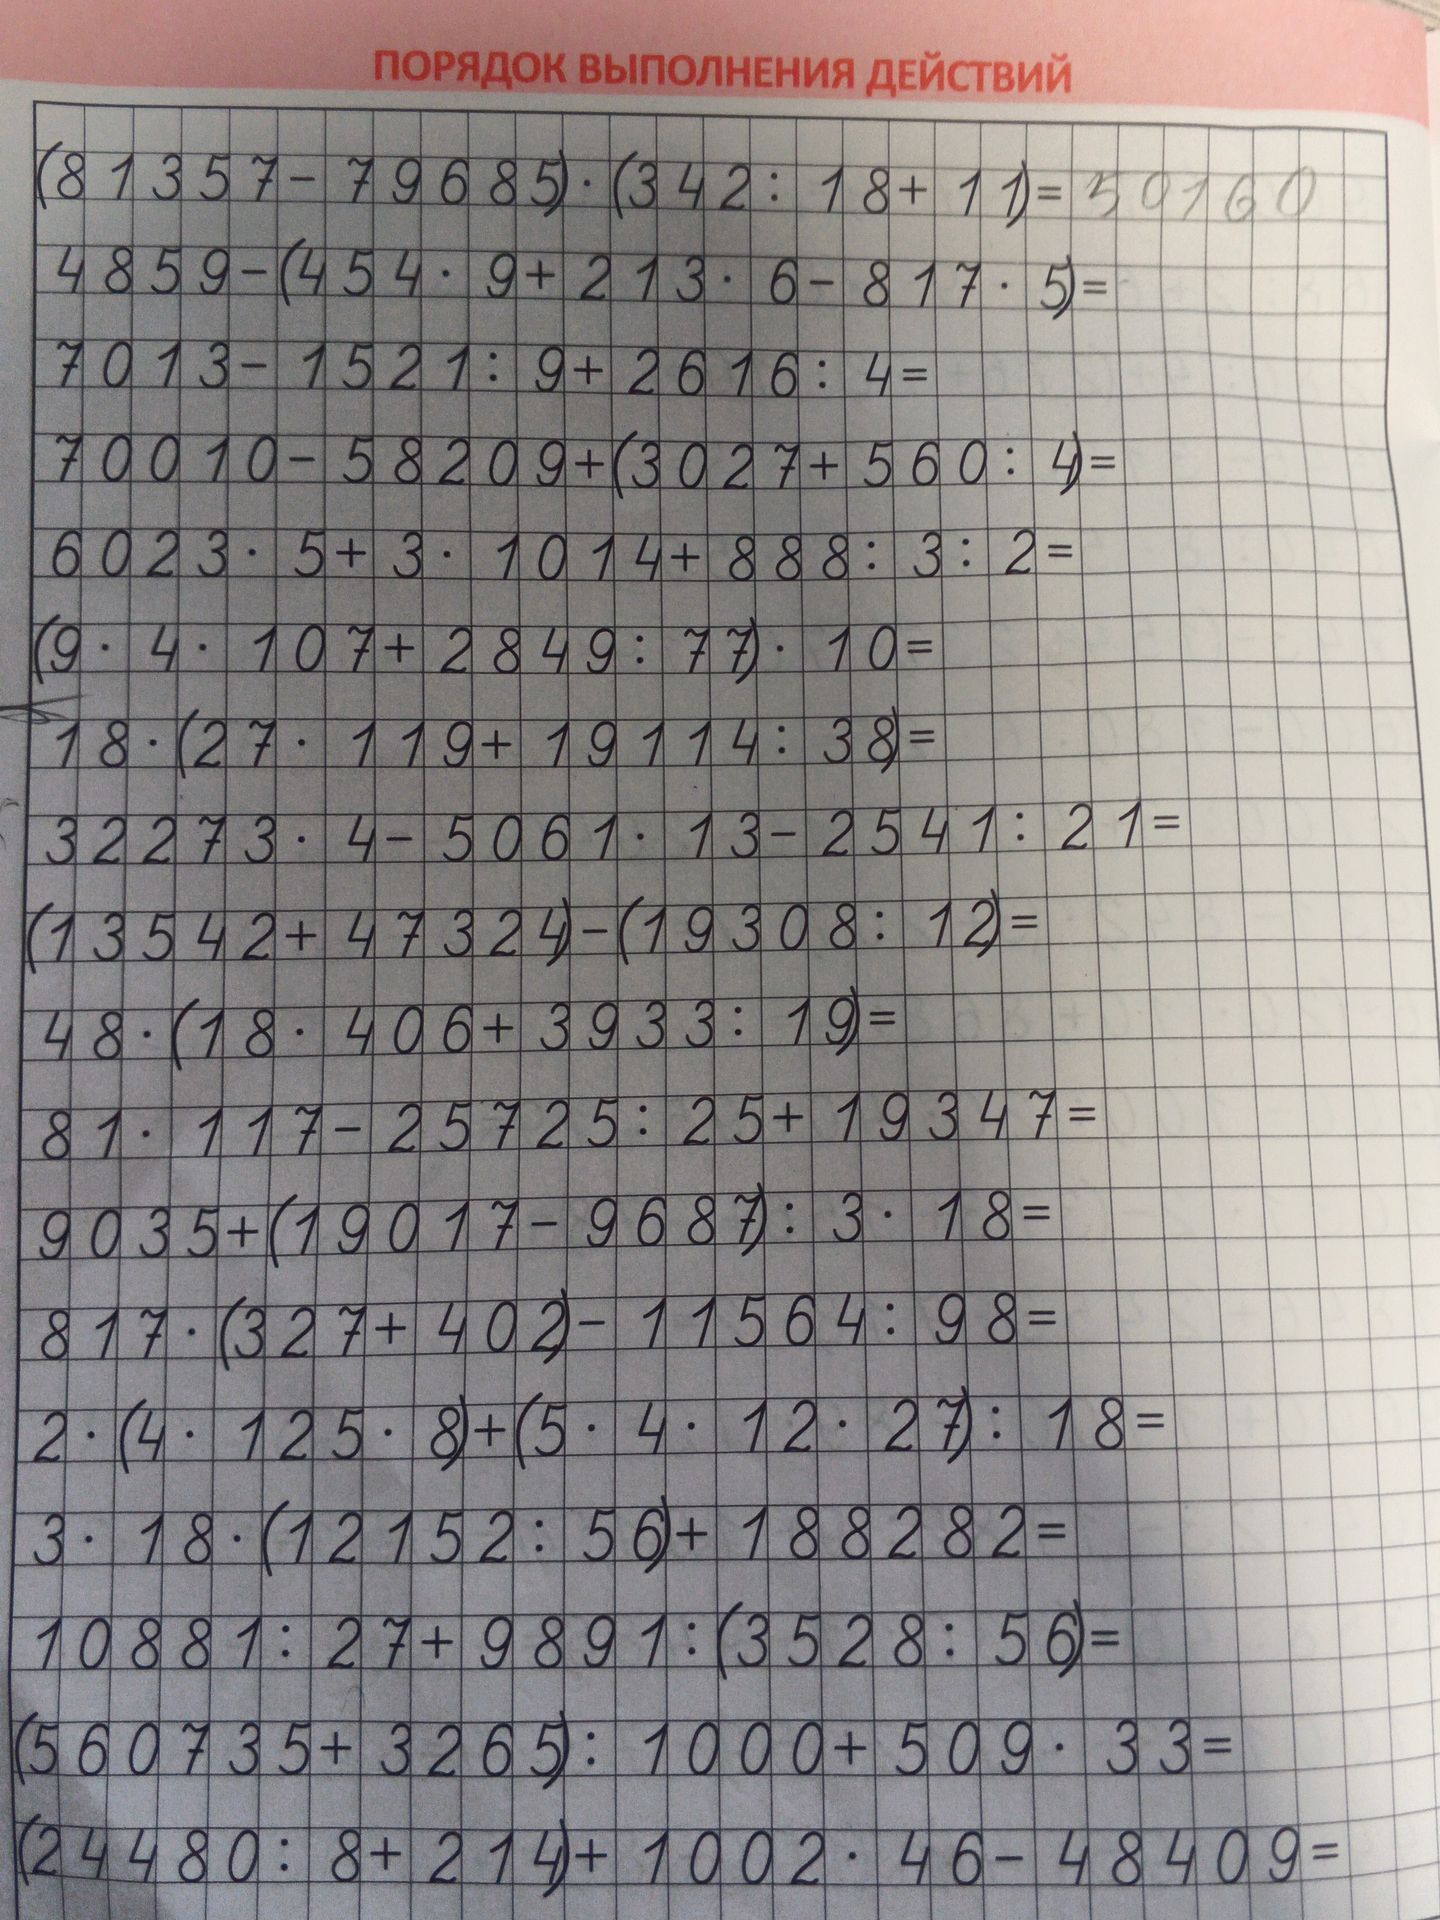 ПОРЯДОК ВЫПОЛНЕНИЯ ДЕЙСТВИЙ
(81357-79685)·(342:18+11)=50160
4859-(454·9+213·6-817·5)=
7013-1521:9+2616:4=
70010-58209+(3027+560:4)=
6023·5+3·1014+888:3:2=
(9·4·107+2849:77)·10=
18·(27·119+19114:38)=
32273·4-5061·13-2541:21=
(13542+47324)-(19308:12)=
48·(18·406+3933:19)=
81·117-25725:25+19347=
9035+(19017-9687):3·18=
817·(327+402)-11564:98=
2·(4·125·8)+(5·4·12·27):18=
3·18·(12152:56)+188282=
10881:27+9891:(3528:56)=
(560735+3265):1000+509·33=
(24480:8+214)+1002·46-48409=